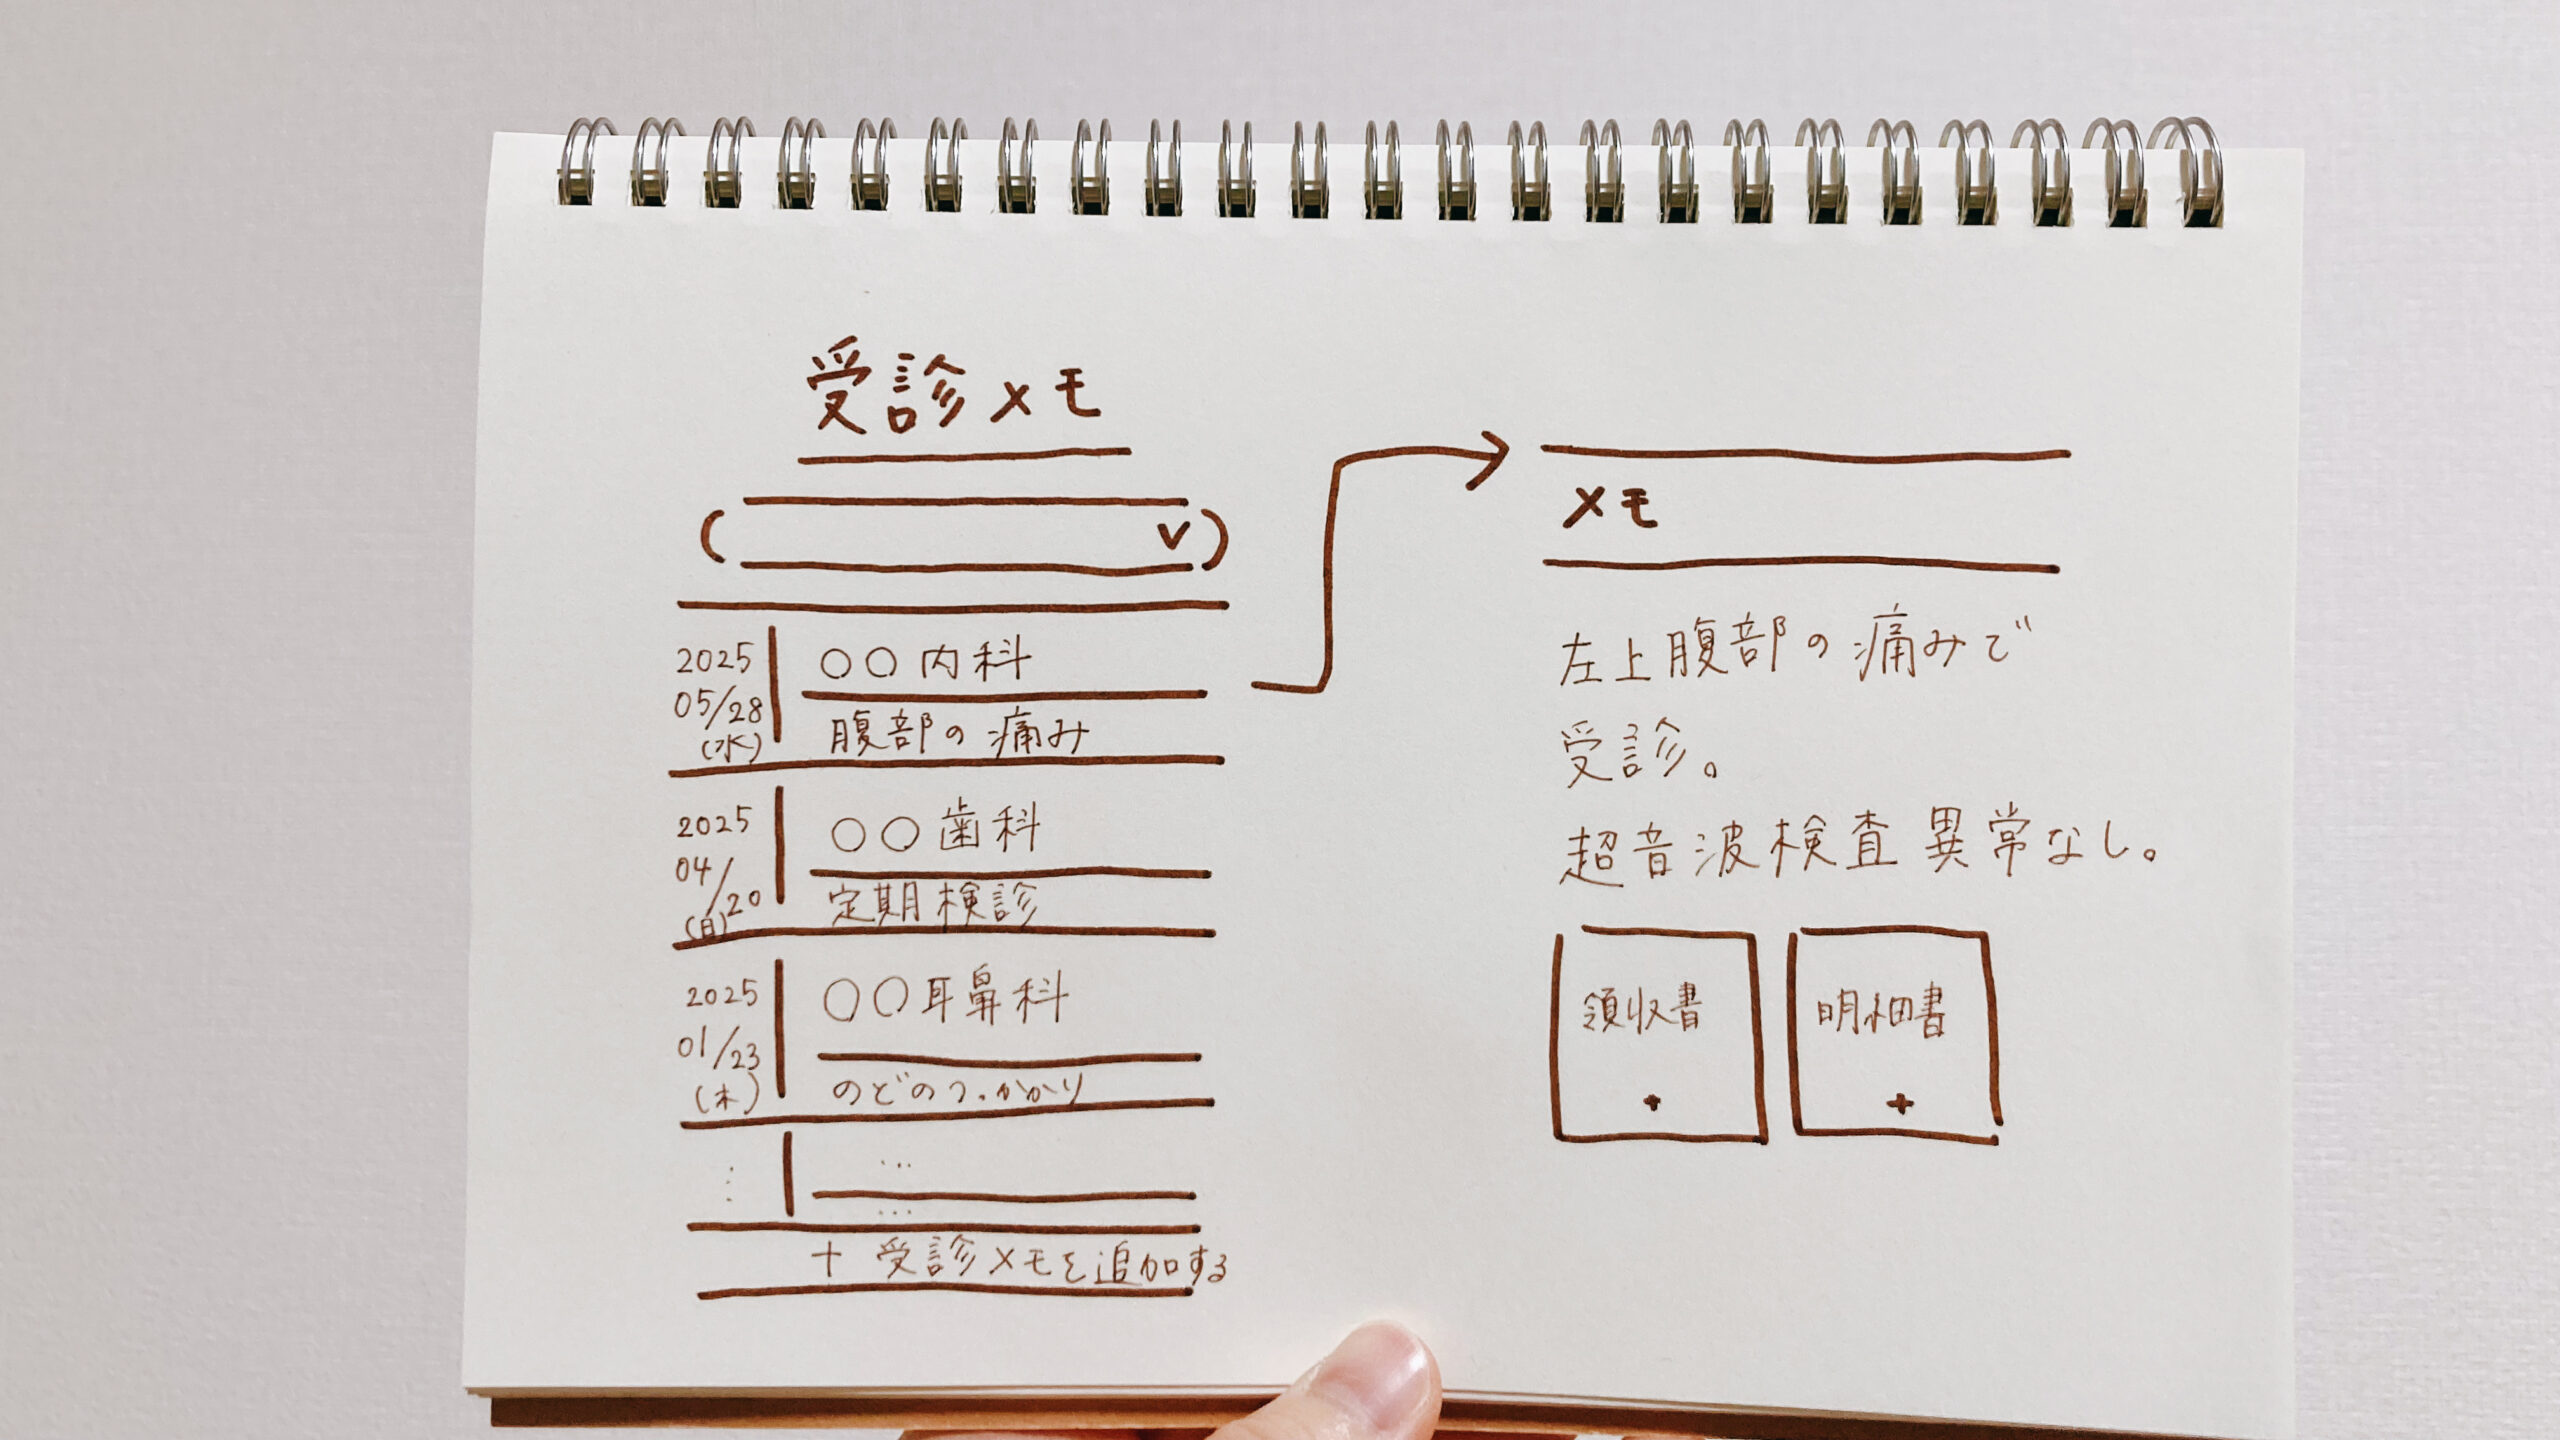 受診メモ
v
2025
05/28
(水)
〇〇内科
腹部の痛み
2025
04/20
(日)
〇〇歯科
定期検診
2025
01/23
(木)
〇〇耳鼻科
のどのつっかかり
⋮
…
…
+ 受診メモを追加する
メモ
左上腹部の痛みで
受診。
超音波検査 異常なし。
領収書
+
明細書
+